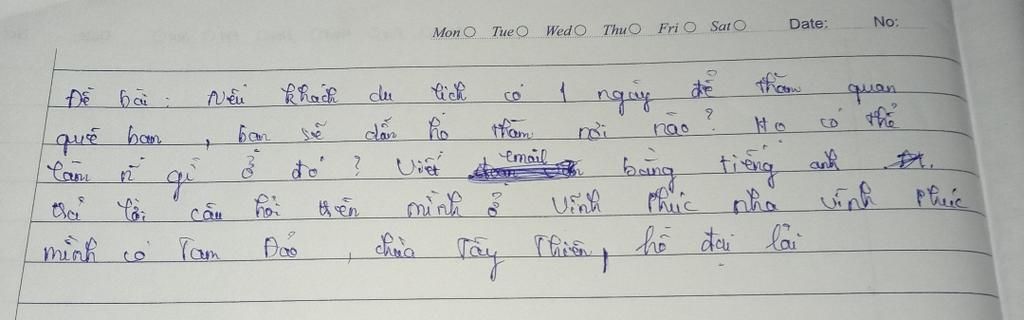 Mon Tue Wed Thu Fri Sat Date: No:
Đề bài : Nếu khách du lịch có 1 ngày để thăm quan
quê bạn , bạn sẽ dẫn họ thăm nơi nào? Họ có thể
làm n gì ở đó ? Viết email bằng tiếng anh
trả lời câu hỏi trên mình ở Vĩnh Phúc nha Vĩnh Phúc
mình có Tam Đảo , chùa Tây Thiên, hồ đại lải